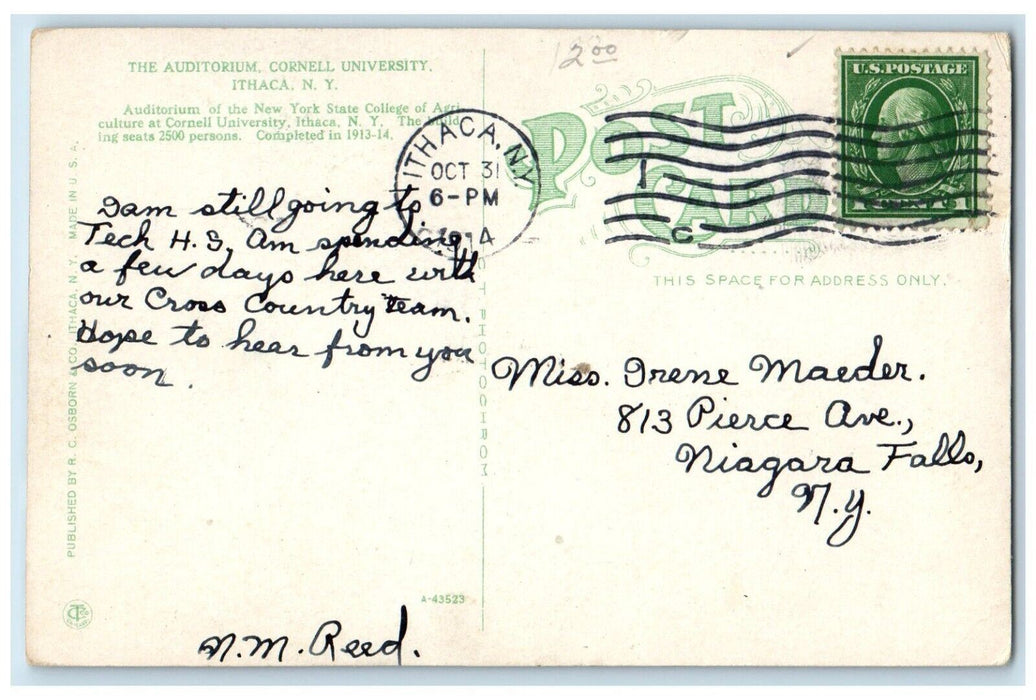 12.00
THE AUDITORIUM, CORNELL UNIVERSITY,
ITHACA, N. Y.
Auditorium of the New York State College of Agri-
culture at Cornell University, Ithaca, N. Y. The build-
ing seats 2500 persons. Completed in 1913-14.
ITHACA, N.Y.
OCT 31
6-PM
1914
POST
CARD
U.S. POSTAGE
1 CENTS 1
1
C
THIS SPACE FOR ADDRESS ONLY.
I am still going to
Tech H.S. Am spending
a few days here with
our Cross Country Team.
Hope to hear from you
soon.
N.M. Reed.
Miss. Irene Maeder.
813 Pierce Ave.,
Niagara Falls,
N.Y.
PUBLISHED BY R. C. OSBORN & CO. ITHACA, N. Y. MADE IN U. S. A.
PHOTOCHROM
A-43523